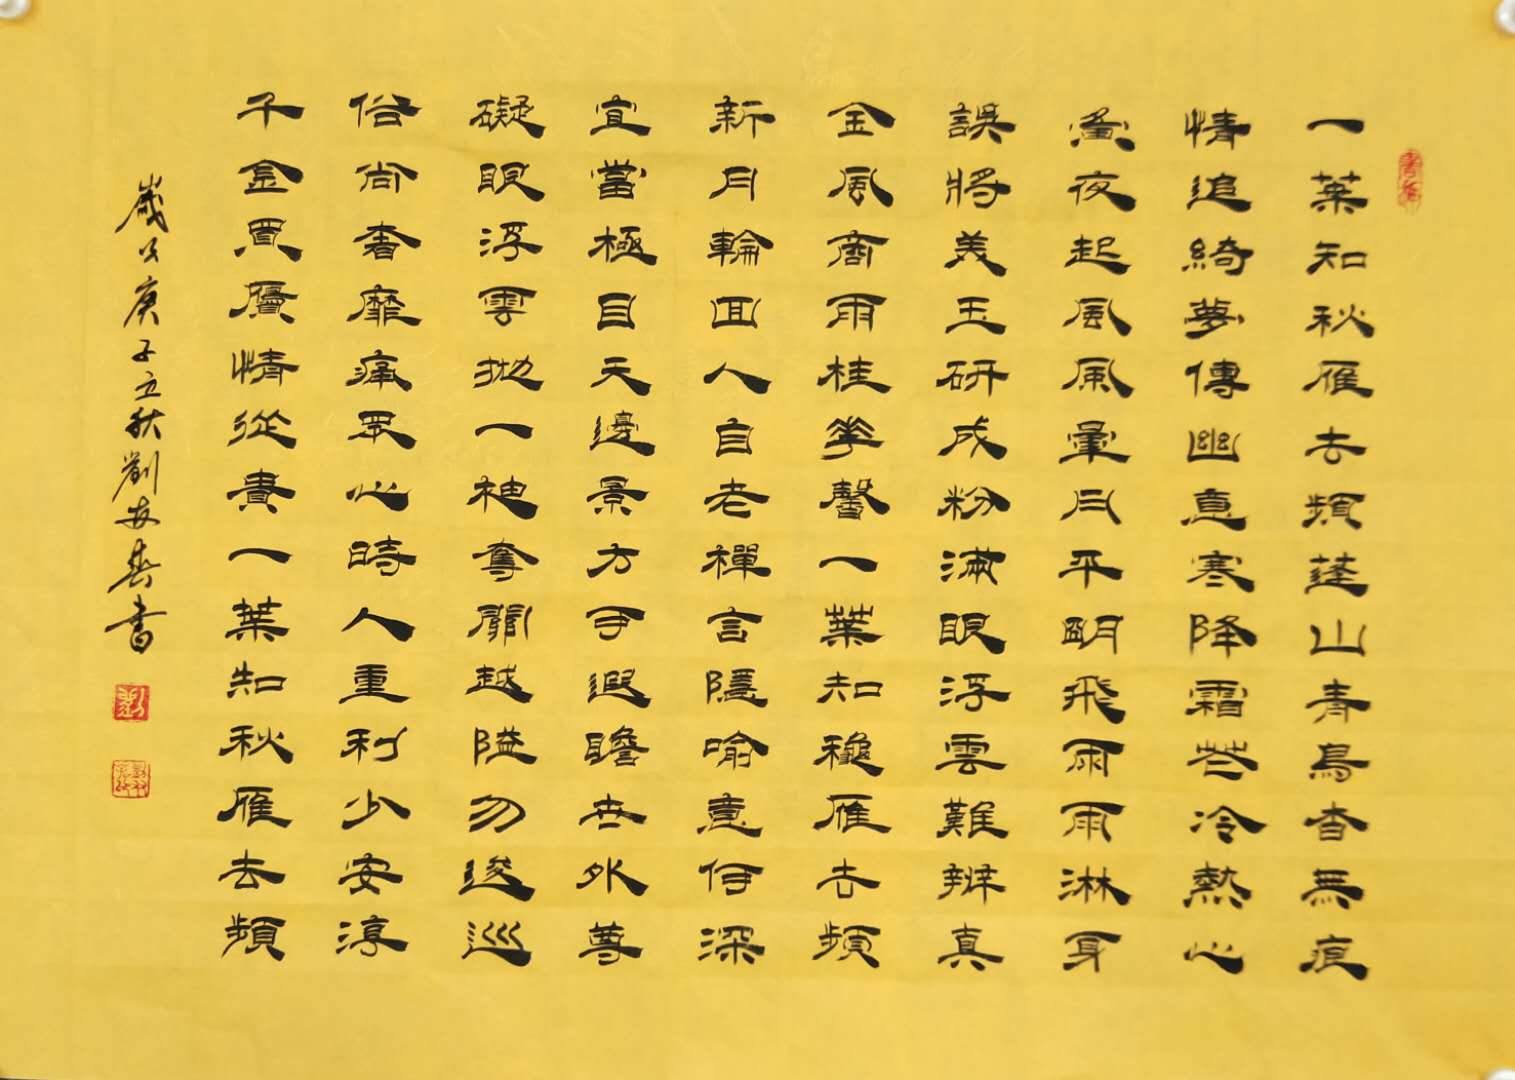 一葉知秋雁去頻蓬山青鳥杳無痕
情追綺夢傳幽意寒降霜花冷熱心
夤夜起風風暈月平明飛雨雨淋身
誤將美玉研成粉滿眼浮雲難辨真
金風商雨桂花馨一葉知穐雁去頻
新月輪回人自老禪言隱喻意何深
宜當極目天邊景方可遐瞻世外尊
礙眼浮雲拋一袖奪關越隘勿逡巡
俗尚奢靡痛眾心時人重利少安淳
千金買贗情從貴一葉知秋雁去頻
歲次庚子立秋劉安春書
劉